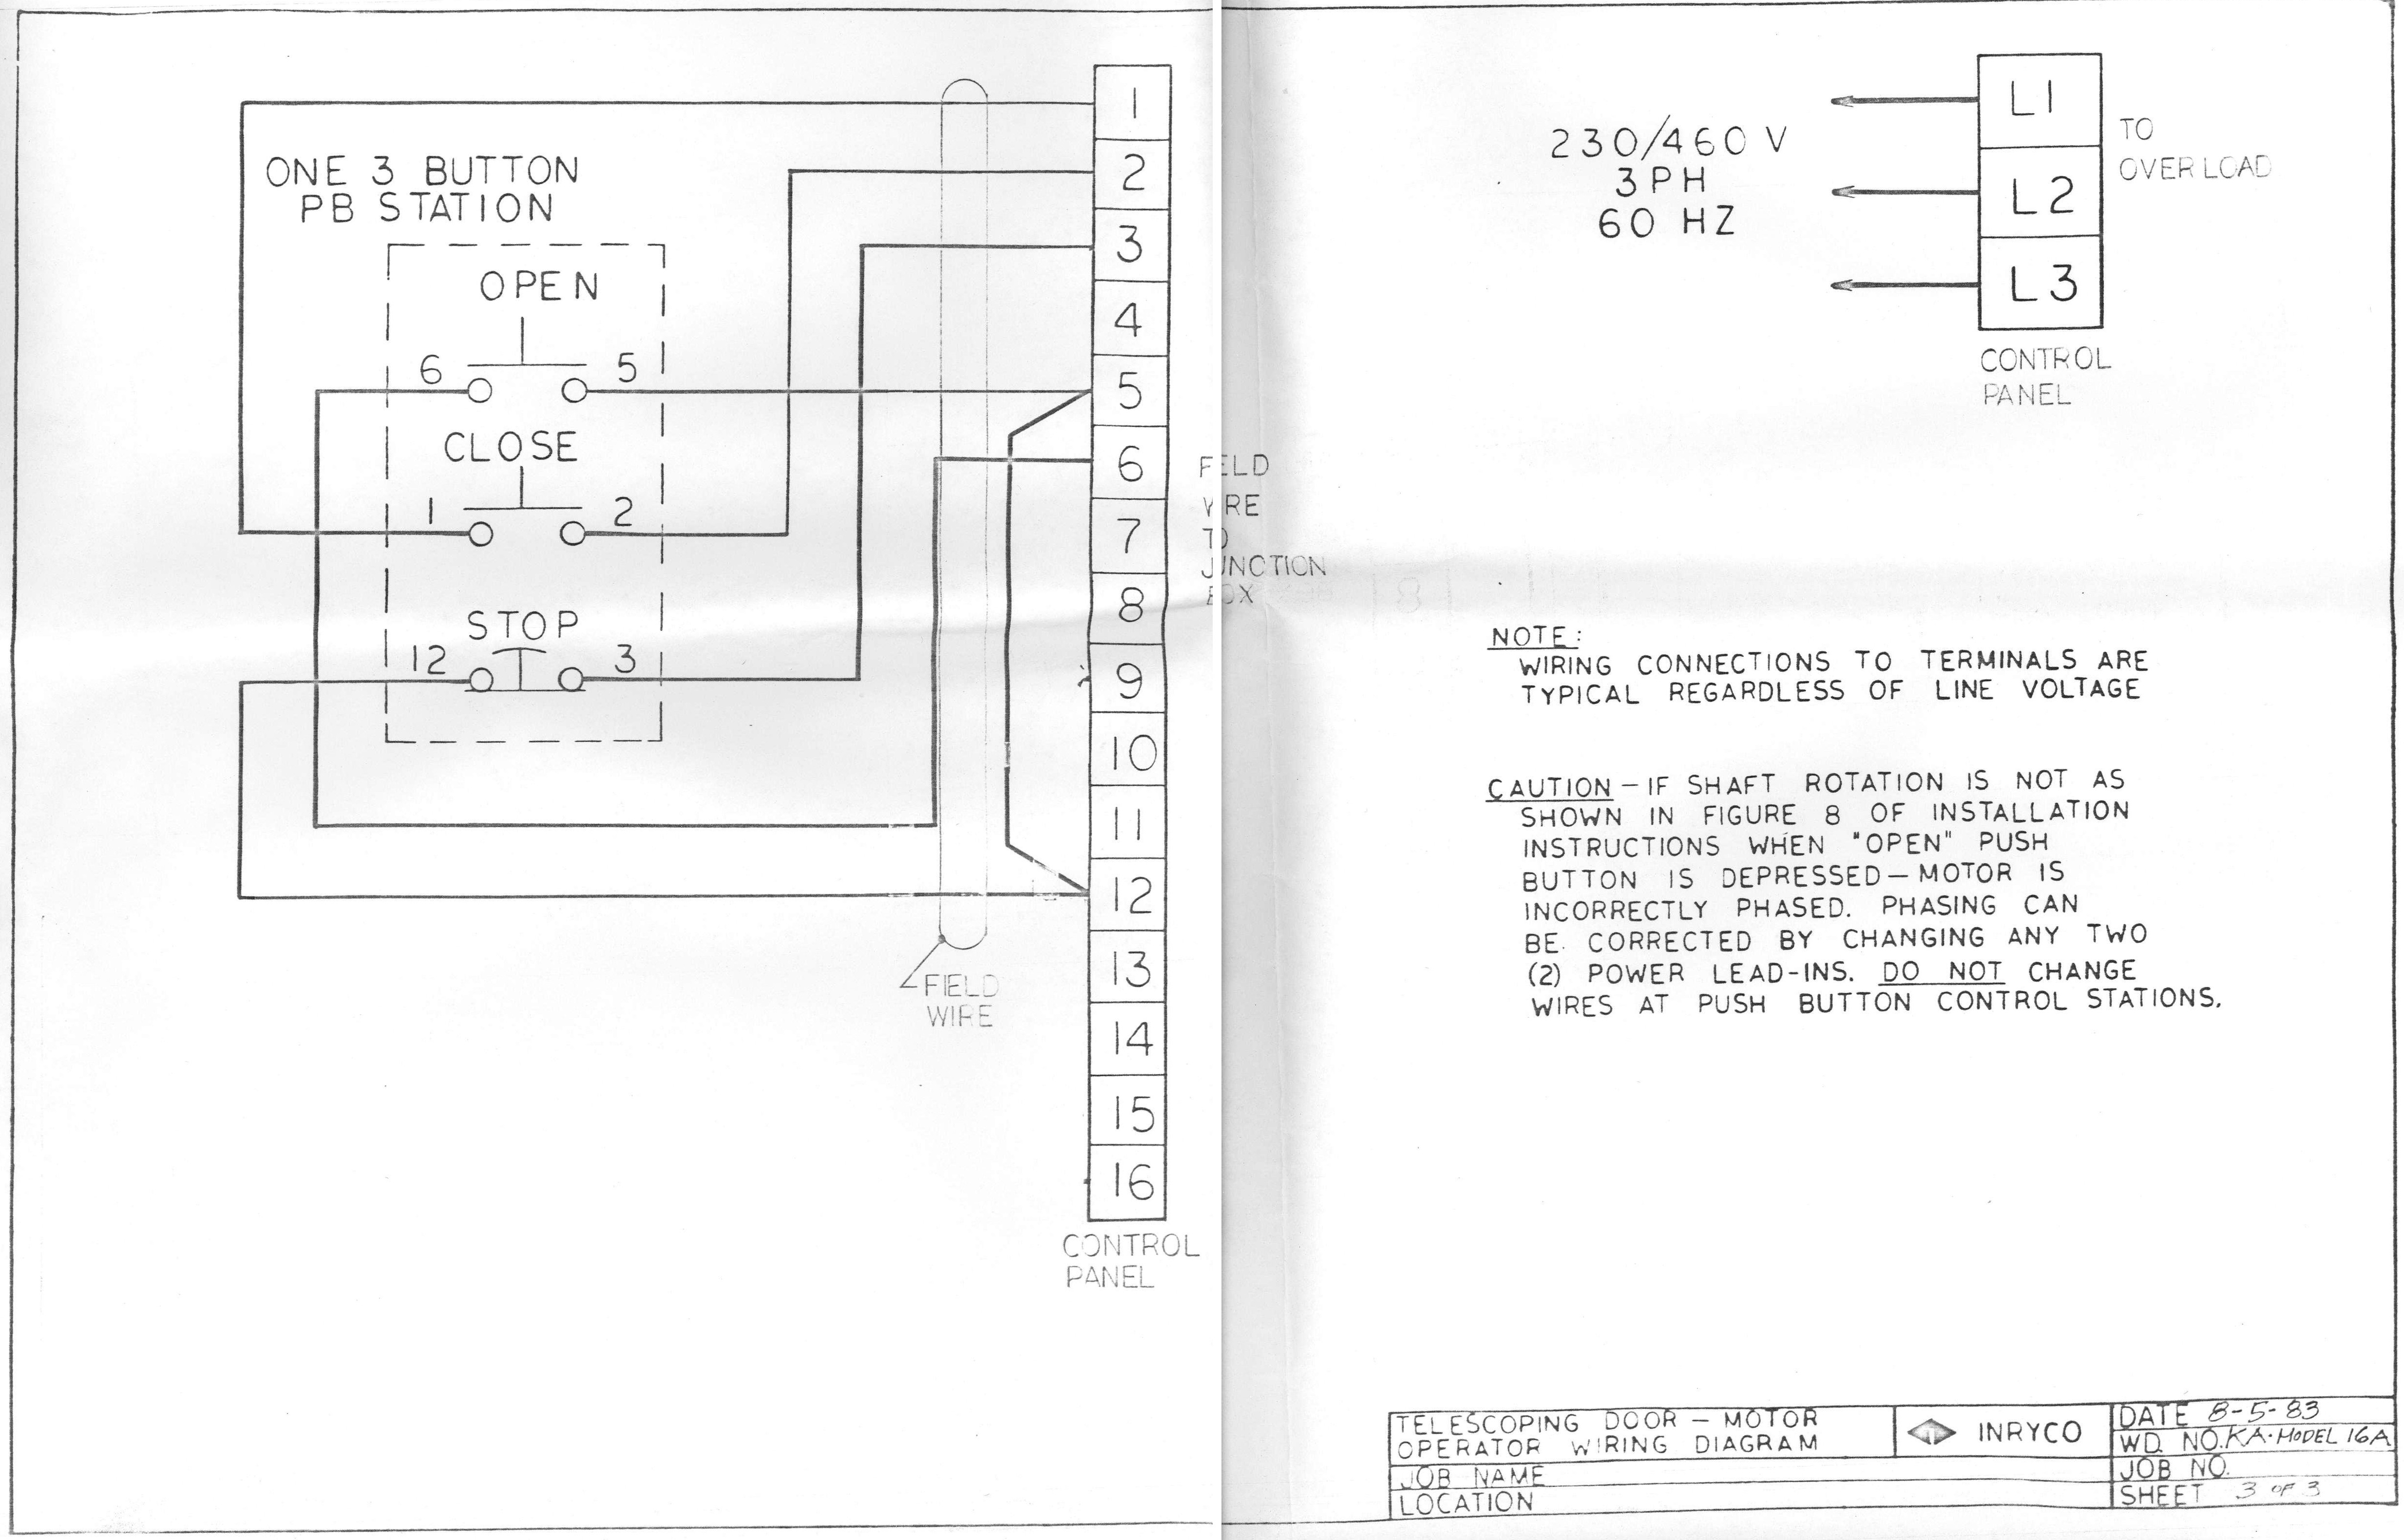 ONE 3 BUTTON
PB STATION
OPEN
6 5
CLOSE
1 2
STOP
12 3
1
2
3
4
5
6
7
8
9
10
11
12
13
14
15
16
FIELD
WIRE
CONTROL
PANEL
FIELD
WIRE
TO
JUNCTION
BOX
230/460 V
3PH
60 HZ
L1
L2
L3
TO
OVERLOAD
CONTROL
PANEL
NOTE:
WIRING CONNECTIONS TO TERMINALS ARE
TYPICAL REGARDLESS OF LINE VOLTAGE
CAUTION – IF SHAFT ROTATION IS NOT AS
SHOWN IN FIGURE 8 OF INSTALLATION
INSTRUCTIONS WHEN "OPEN" PUSH
BUTTON IS DEPRESSED – MOTOR IS
INCORRECTLY PHASED. PHASING CAN
BE CORRECTED BY CHANGING ANY TWO
(2) POWER LEAD-INS. DO NOT CHANGE
WIRES AT PUSH BUTTON CONTROL STATIONS.
TELESCOPING DOOR – MOTOR
OPERATOR WIRING DIAGRAM
INRYCO
DATE 8-5-83
WD. NO. KA-MODEL 16A
JOB NAME
JOB NO.
LOCATION
SHEET 3 OF 3